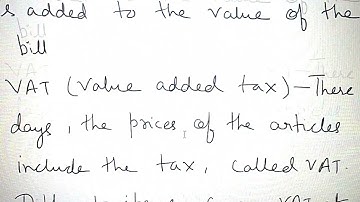 s added to the value of the
bill
VAT (value added tax) – There
days, the prices of the articles
include the tax, called VAT.